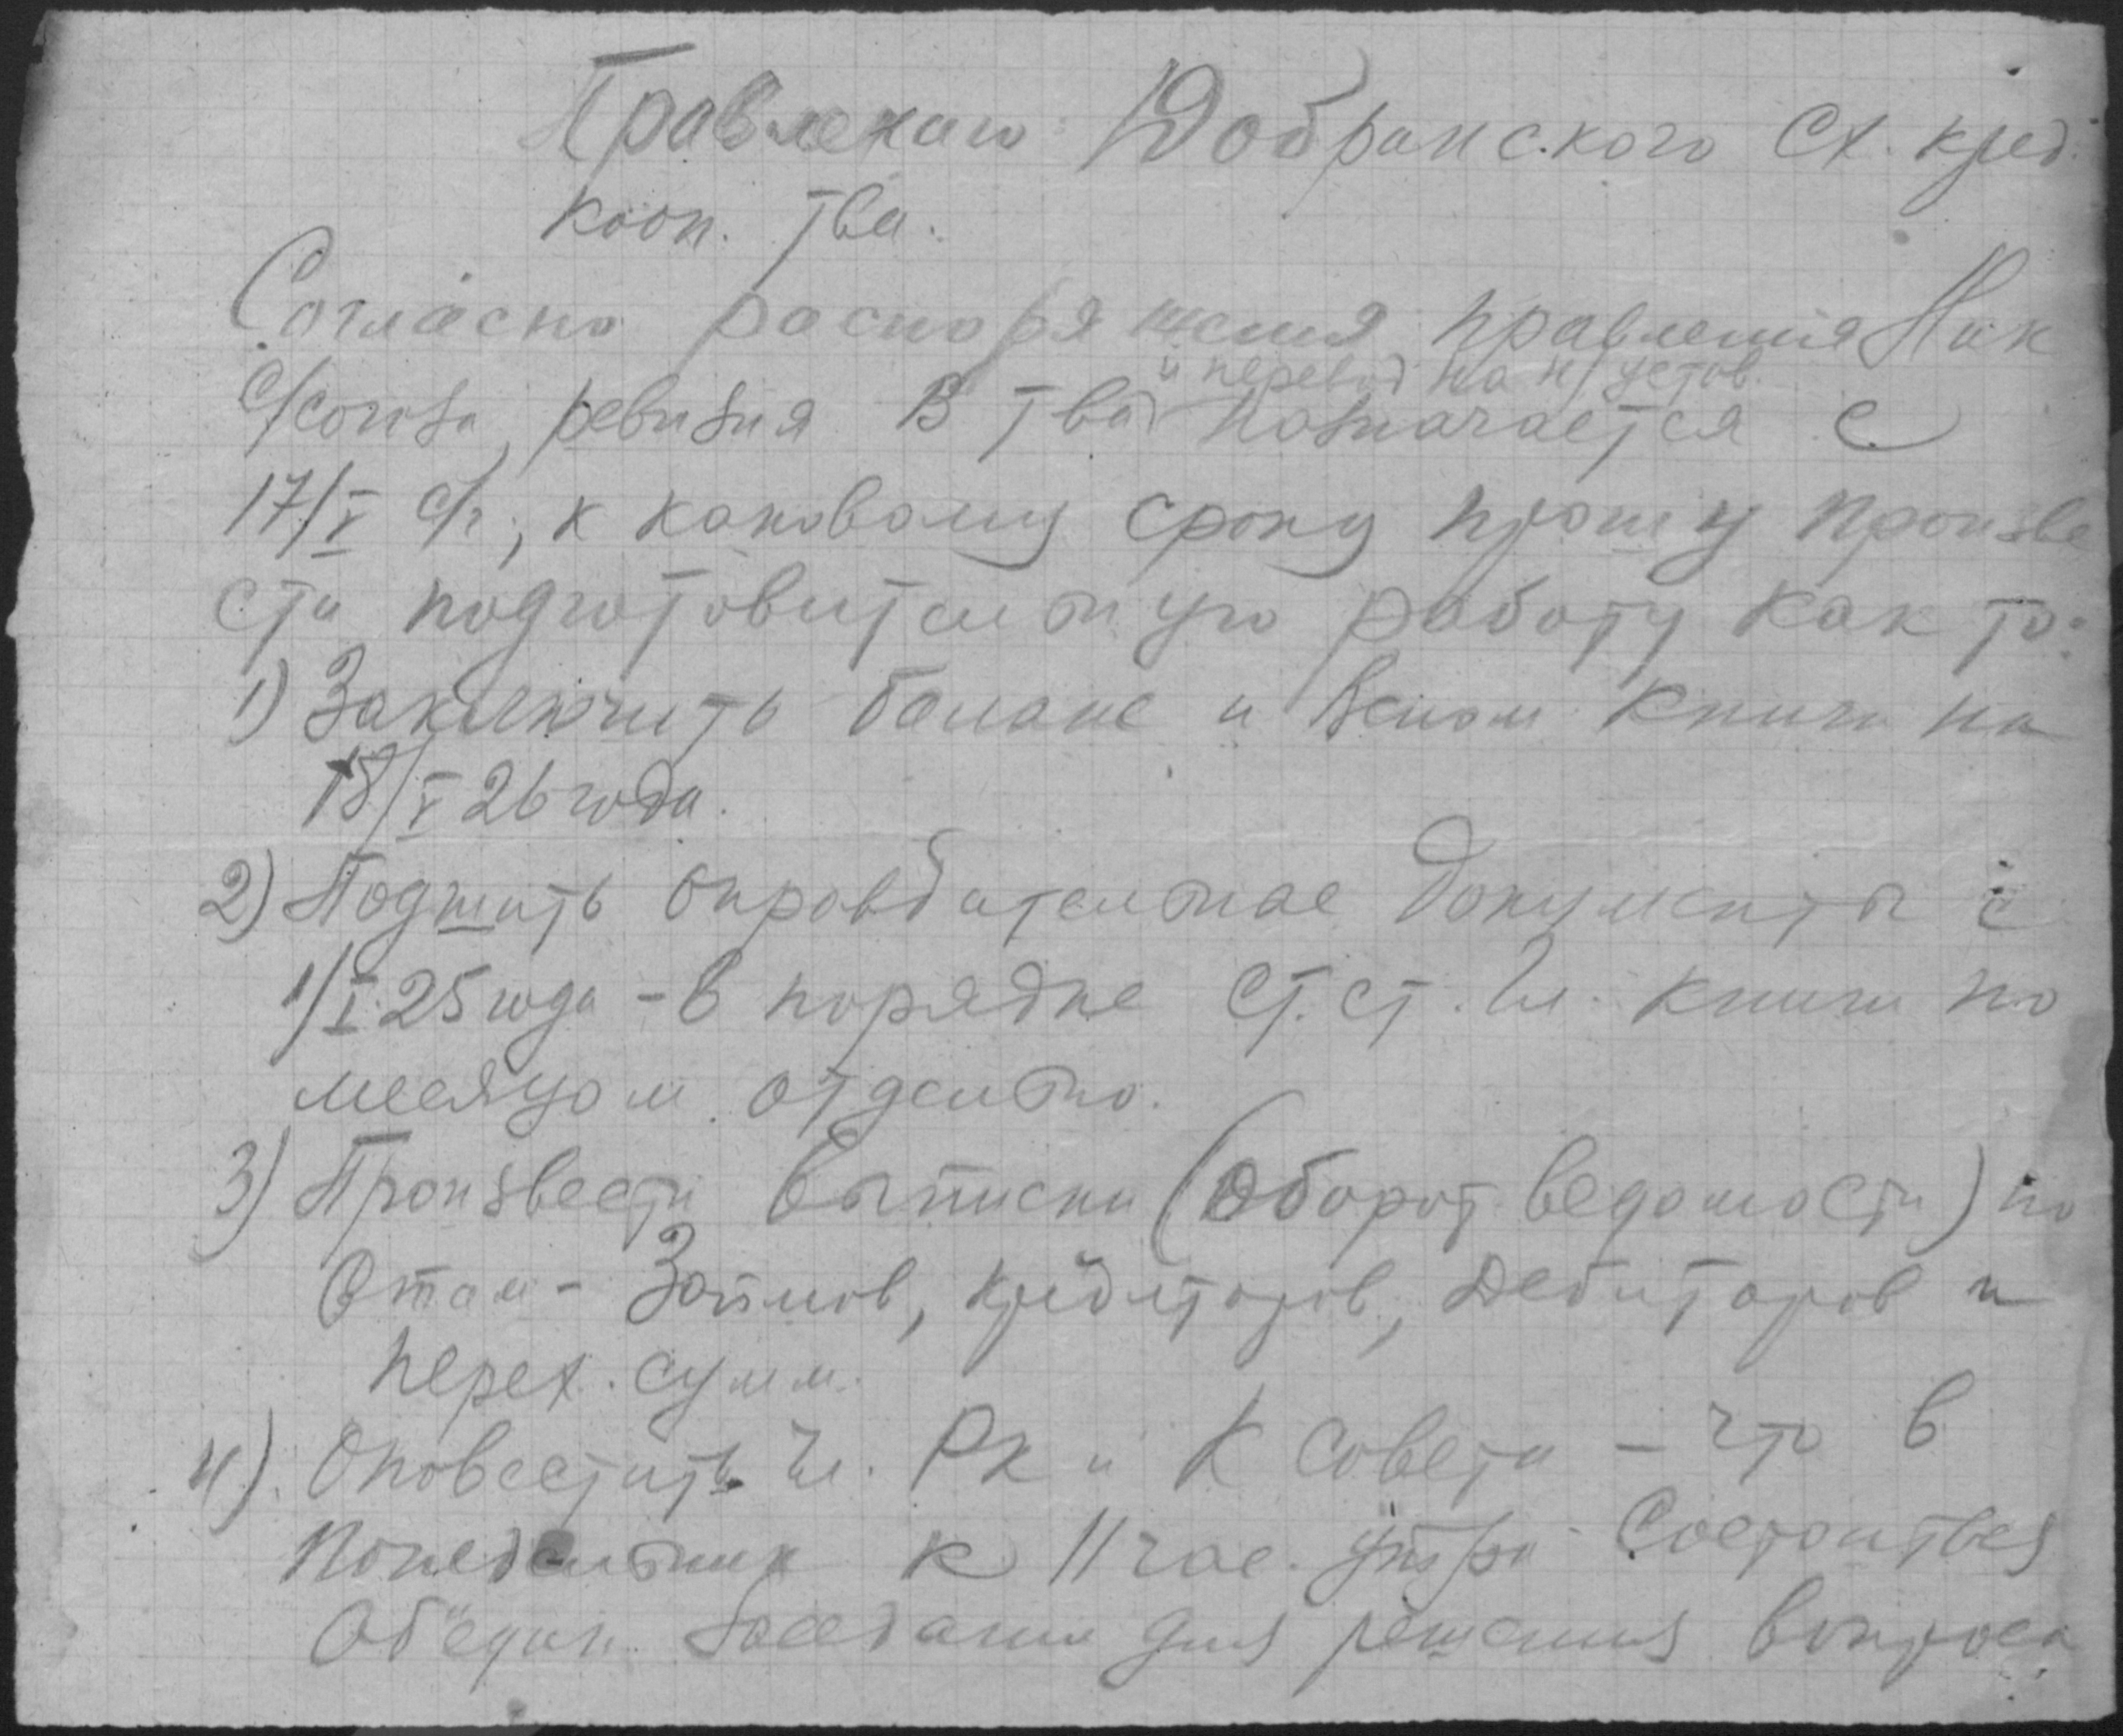 Правлению Добранского Сх. кред.
кооп. Тва.
Согласно распоряжения правления Ник
с/союза, ревизия в Тва назначается с
и перевод на н/устав.
17/V с/г, к каковому сроку прошу произве
сти подготовительную работу как то:
1) Заключить баланс и вспом книги на
18/V 26 года.
2) Подшить оправдательные документы с
1/I 25 года - в порядке ст. ст. Гл. книги по
месяцом отдельно.
3) Произвести выписки (Оборот ведомости) по
Займов, кредиторов, дебиторов и
перех. сумм.
4). Оповестить Чл. РК и К Совета - что в
Понедельник к 11 час. утра Состоиться
Объедин заседание для решения вопроса